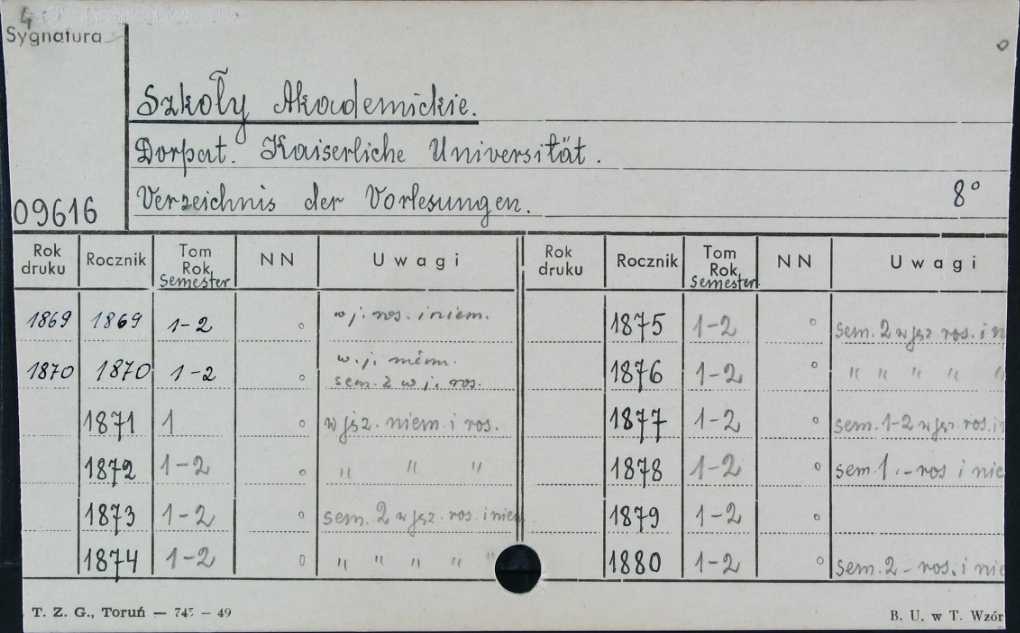 4
Sygnatura
Szkoły Akademickie.
Dorpat. Kaiserliche Universität.
Verzeichnis der Vorlesungen. 8°
09616
Rok druku Rocznik Tom Rok Semester NN Uwagi Rok druku Rocznik Tom Rok Semester NN Uwagi
1869 1869 1-2 w j. ros. i niem. 1875 1-2 sem. 2 w jęz ros. i n
1870 1870 1-2 w. j. niem. sem. 2 w j. ros. 1876 1-2 " " " " "
1871 1 w jęz. niem. i ros. 1877 1-2 sem. 1-2 w jęz. ros. i n
1872 1-2 " " " 1878 1-2 sem 1.-ros i nie
1873 1-2 sem. 2 w jęz. ros. i niem 1879 1-2
1874 1-2 " " " " " 1880 1-2 sem. 2 - ros. i nie
T. Z. G., Toruń — 745 — 49 B. U. w T. Wzór